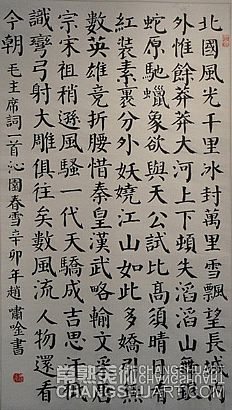 北國風光千里冰封萬里雪飄望長城內
外惟餘莽莽大河上下頓失滔滔山舞
蛇原馳蠟象欲與天公試比高須晴日
紅裝素裹分外妖嬈江山如此多嬌引
數英雄競折腰惜秦皇漢武略輸文采
宗宋祖稍遜風騷一代天驕成吉思汗
識彎弓射大雕俱往矣數風流人物還看
今朝 毛主席詞一首沁園春雪辛卯年趙嘯唫書
CHANGSHUART.COM